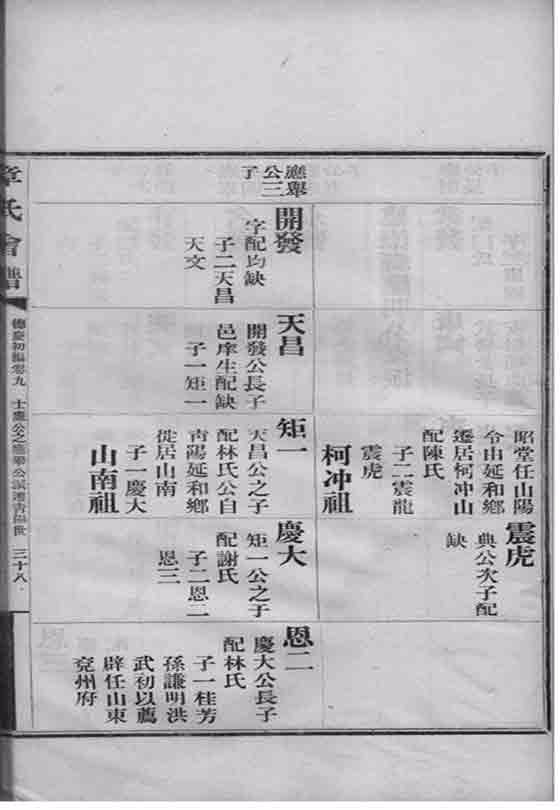 昭堂任山陽
令由延和鄉
遷居柯冲山
配陳氏
子二震龍
震虎
柯冲祖
震虎
典公次子配
缺
應舉
公三
子
開發
字配均缺
子二天昌
天文
天昌
開發公長子
邑庠生配缺
子一矩一
矩一
天昌公之子
配林氏公自
青陽延和鄉
徙居山南
子一慶大
山南祖
慶大
矩一公之子
配謝氏
子二恩二
恩三
恩二
慶大公長子
配林氏
子一桂芳
孫謙明洪
武初以薦
辟任山東
兗州府
章氏會譜
德慶初編卷九
士應公之應舉公派遷青陽世
三十八